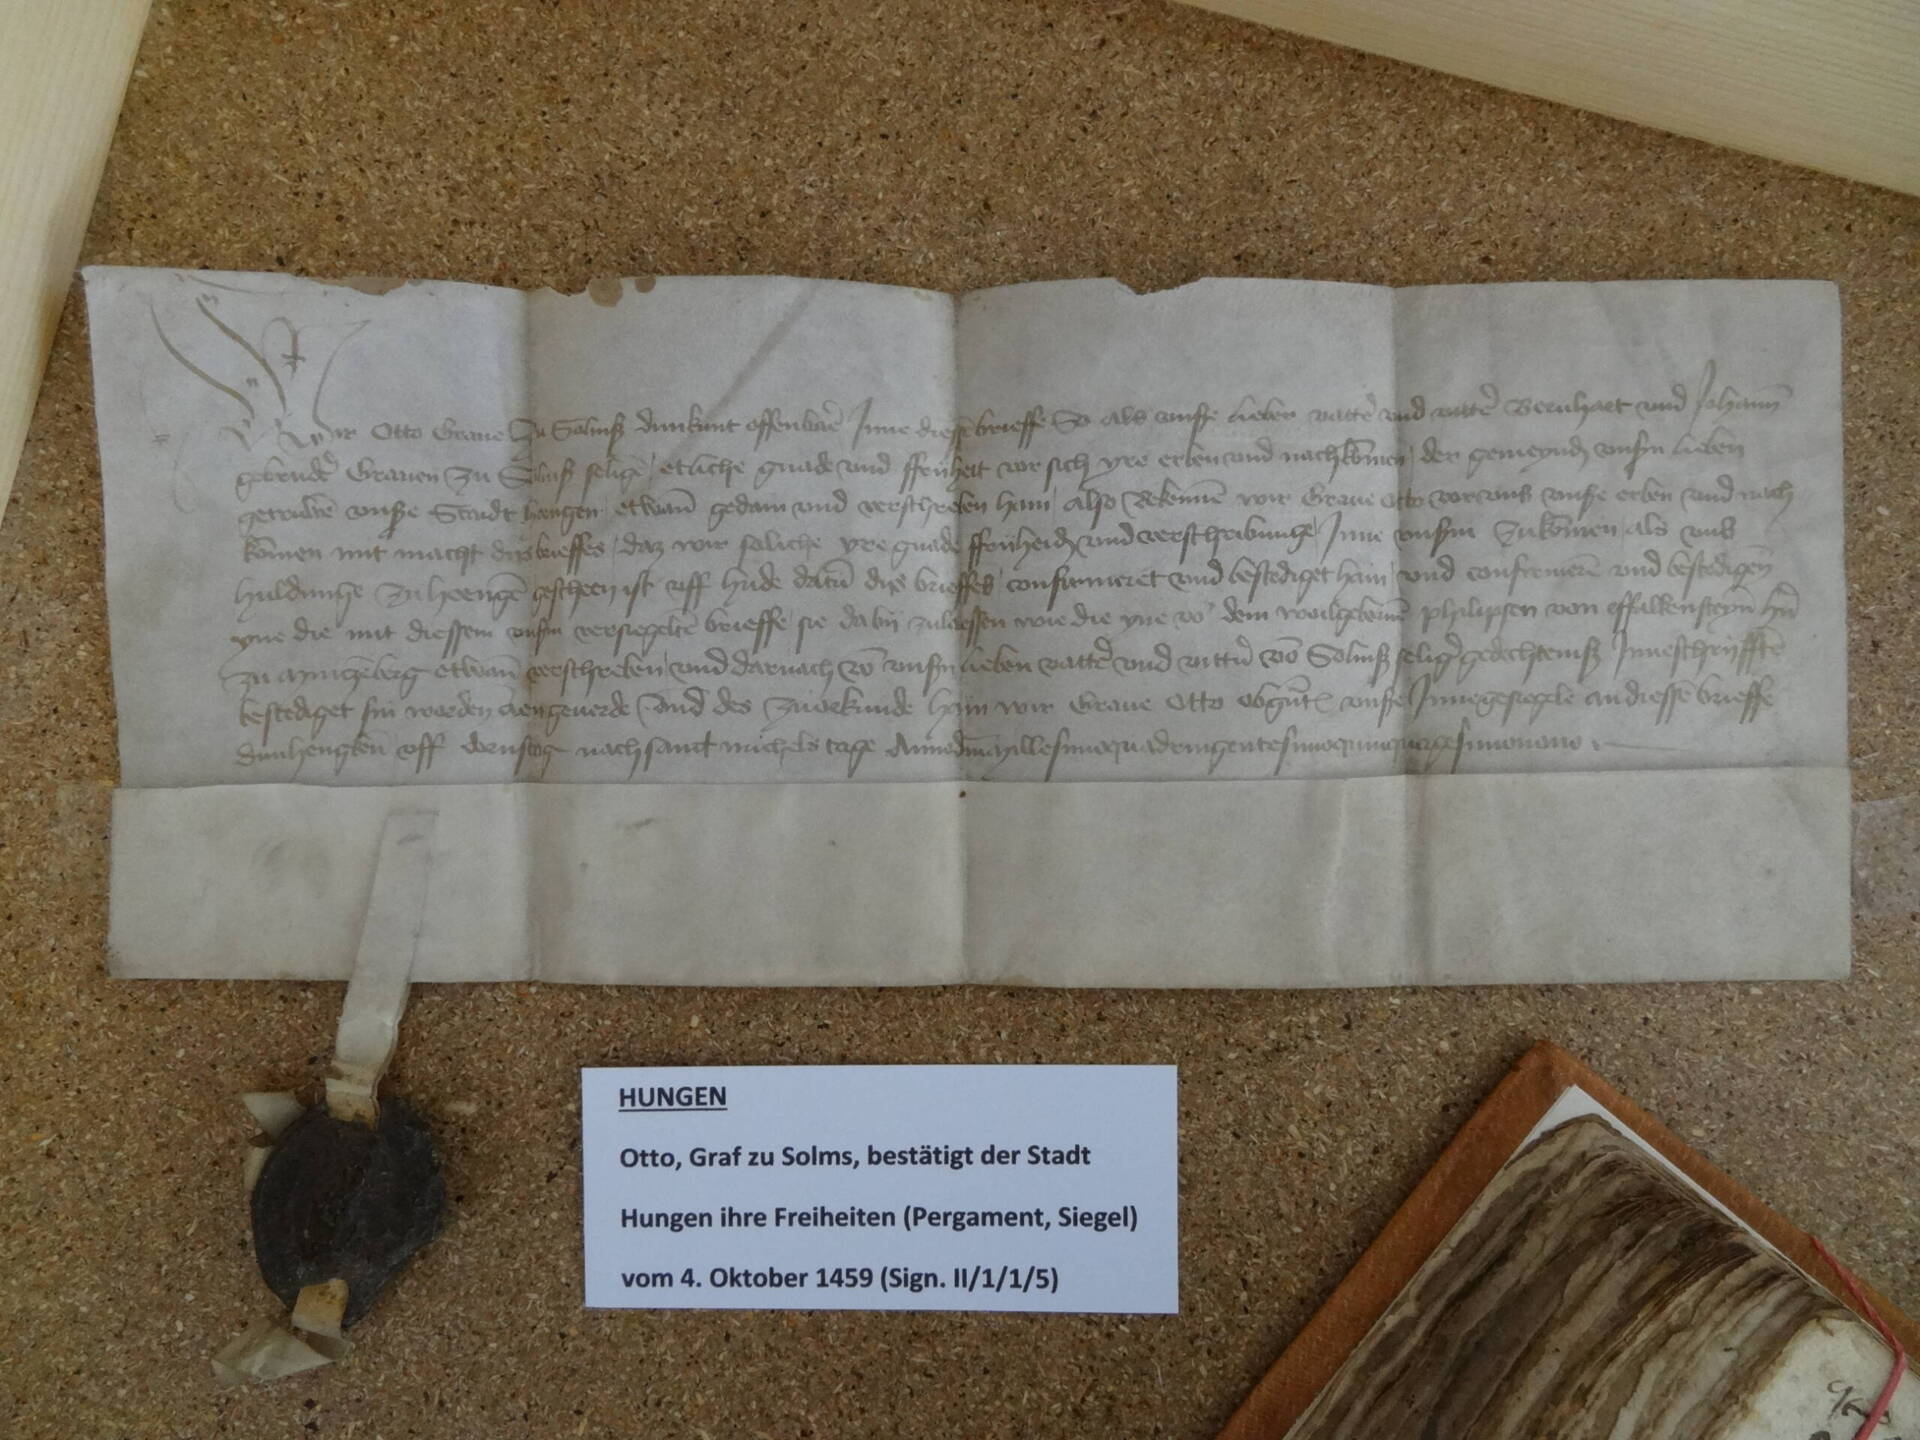 Wir Otto Graue Zu Solmß dun kunt offenbare Inne diesse brieffe So als unsse lieber vatter und vetter Bernhart und Johann
gebruder Grauen zu Solmß selige etliche gnade und ffriiheit vor sich yre erben und nachkomen der gemeynd unsern lieben
getruwen unsse Stadt hoengen etwan gedain und verschreben hain also Bekennen wir Graue Otto vor uns unsse erben und nach
komen mit macht diß brieffes daz wir soliche yre gnade ffriiheid und verschribunge Inne unserm zukomen als uns
huldunge zu hoengen gescheen ist uff hude datum diß brieffes confirmeret und bestediget hain und confirmeren und bestedigen
yne die mit diessem unserm versiegelten brieffe sie da by zulaessen wie die yne von dem wolgeborn philipsen von ffalkensteyn hern
zu myntzeberg etwan verschreben und darnach von unserm lieben vatter und vetter von Solmß selig gedechteniß Inne schryfften
bestediget sin worden an geuerde Und des zu orkunde hain wir Graue Otto obgnt unsse Innegesiegele an diessen brieffe
dun hengken uff dornstag nach sanct michels tage Anno dm Millesimo quadringentesimo quinquagesimo nono
HUNGEN
Otto, Graf zu Solms, bestätigt der Stadt
Hungen ihre Freiheiten (Pergament, Siegel)
vom 4. Oktober 1459 (Sign. II/1/1/5)